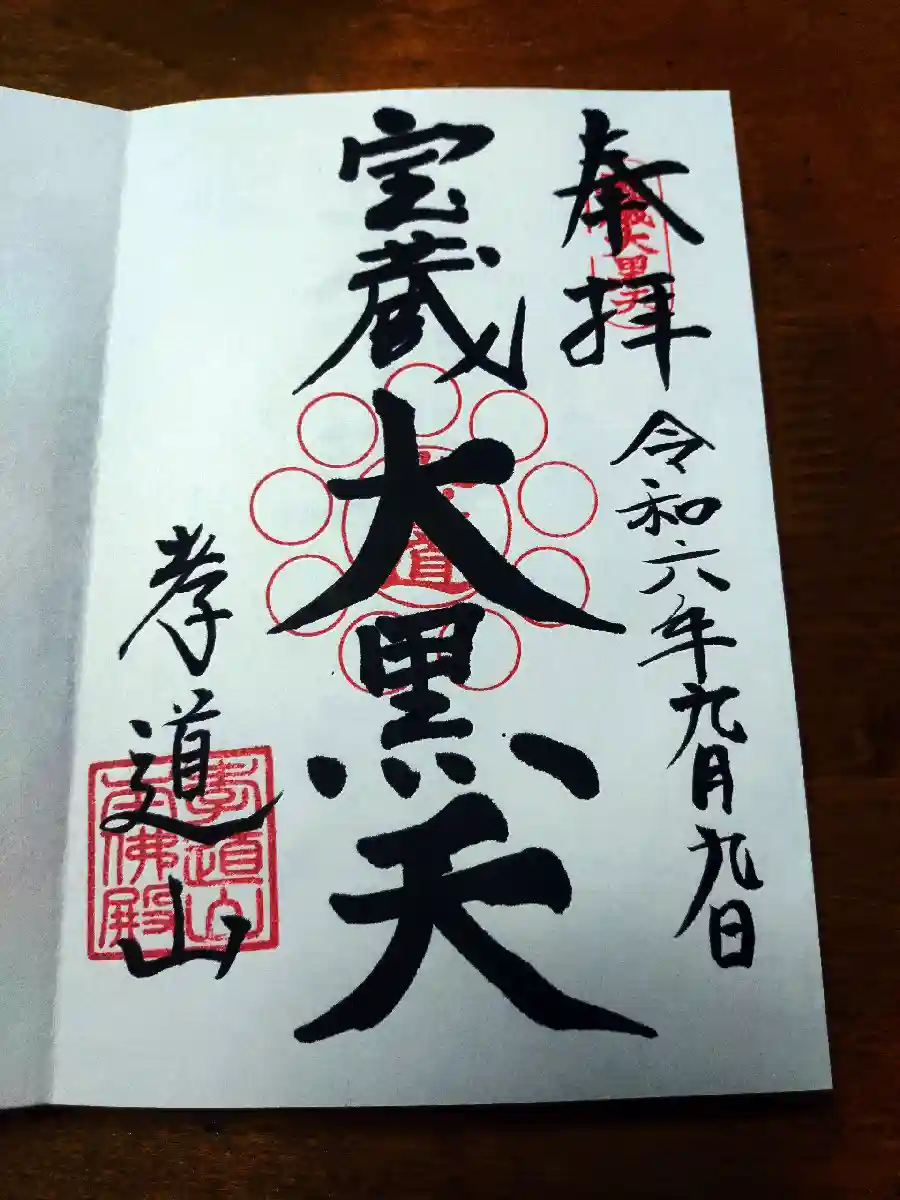 奉拝
令和六年九月九日
宝蔵
大黒天
孝道山
孝道山
本佛殿